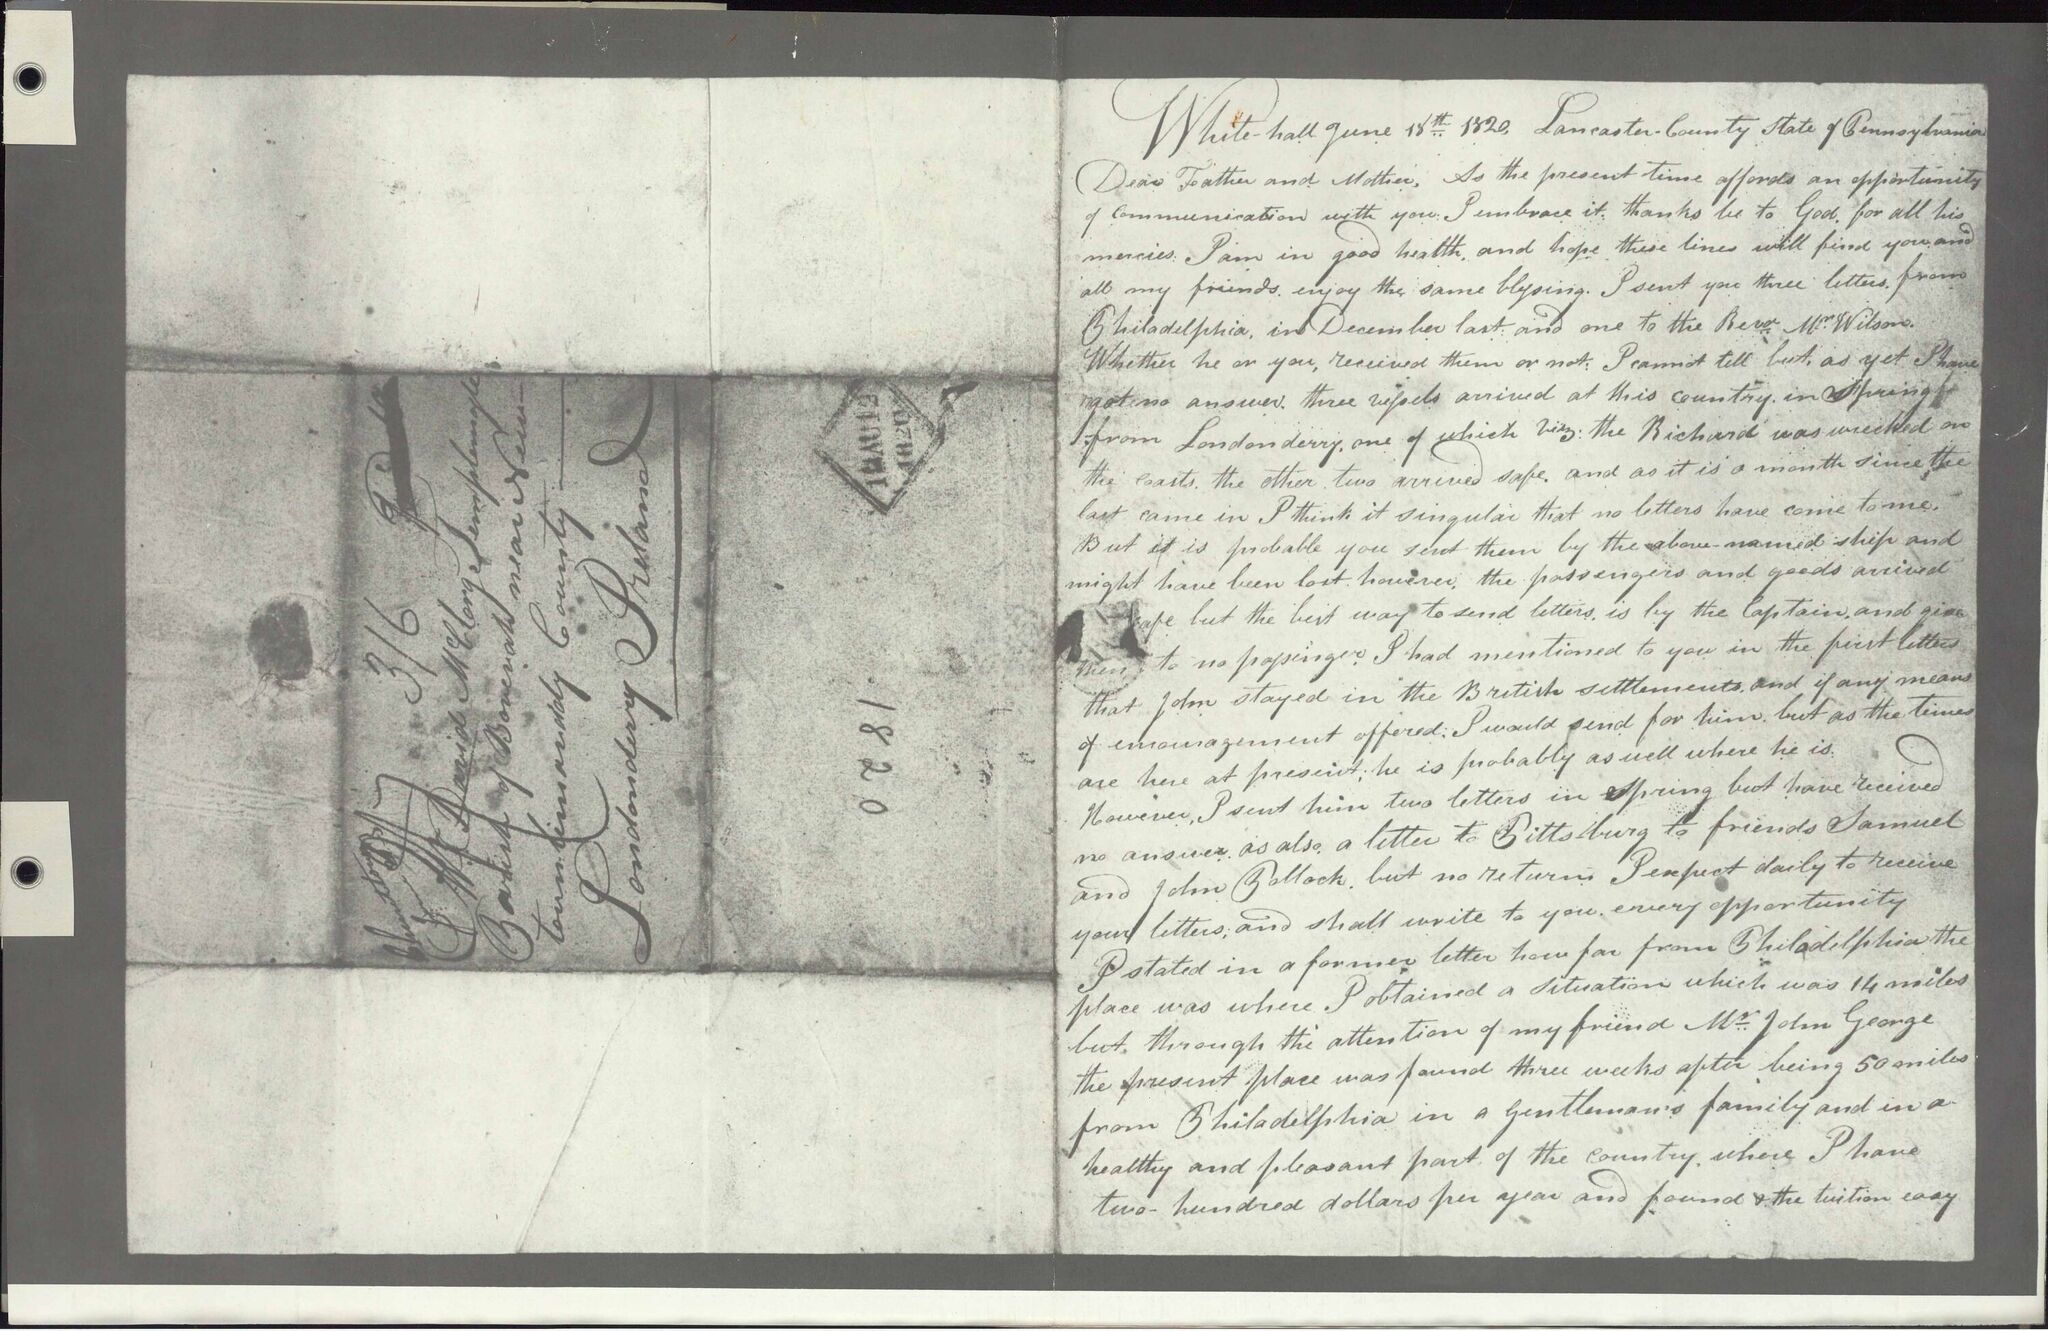 3/6 Paid
Mr David McClorge Templemoyle
Parish of Bovevah near New-
townlimavaddy County
Londonderry Ireland
1820
White-hall June 18th 1820. Lancaster-County State of Pennsylvania
Dear Feather and Mother, As the present time affords an opportunity
of communication with you. I embrace it. thanks be to God. for all his
mercies. I am in good health, and hope these lines will find you and
all my friends. enjoy the same blessing. I sent you three letters from
Philadelphia, in December last and one to the Revd Mr Wilson.
Whither he or you, received them or not, I cannot tell but, as yet I have
got no answer. three vessels arrived at this country in Spring
from Londonderry, one of which viz: the Richard was wrecked on
the coasts. the other two arrived safe. and as it is a month since the
last came in I think it singular that no letters have come to me.
But it is probable you sent them by the above-named ship and
might have been lost. however, the passengers and goods arrived
safe but the best way to send letters, is by the Captain, and give
them to no passenger I had mentioned to you in the first letters
that John stayed in the British settlements. and if any means
of encouragement offered. I would send for him. but as the times
are here at present, he is probably as well where he is.
However, I sent him two letters in Spring but have received
no answer as also a letter to Pittsburg to friends Samuel
and John Pollock, but no return. I expect daily to receive
your letters, and shall write to you every opportunity
I stated in a former letter how far from Philadelphia the
place was where I obtained a situation which was 14 miles
but, through the attention of my friend Mr John George
the present place was found three weeks after being 50 miles
from Philadelphia in a Gentlemans family, and in a
healthy and pleasant part of the country, where I have
two-hundred dollars per year and found & the tuition easy